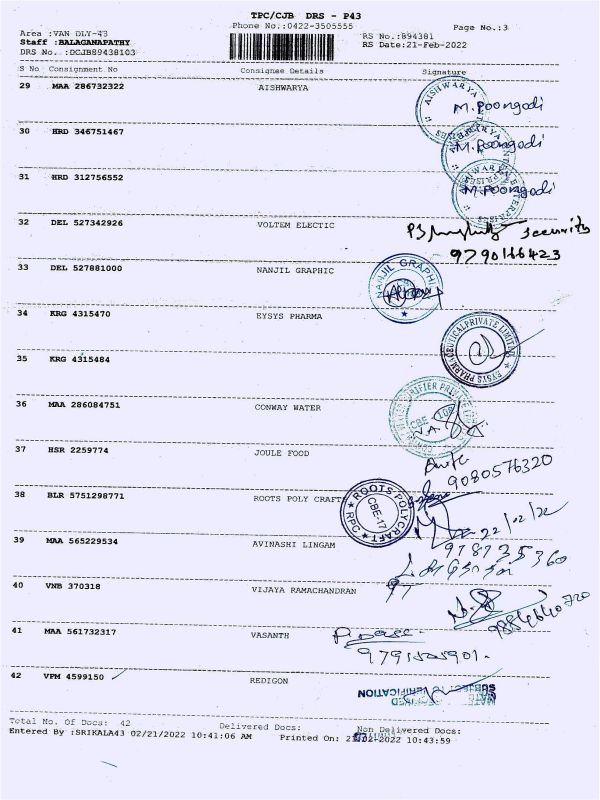 TPC/CJB DRS - P43
Phone No.:0422-3505555
Page No.:3
Area :VAN DLY-43
Staff :BALAGANAPATHY
DRS No.:DCJB89438103
RS No.:894381
RS Date:21-Feb-2022
S No Consignment No Consignee Details Signature
29 MAA 286732322 AISHWARYA M.Poongodi
30 HRD 346751467 M.Poongodi
31 HRD 312756552 M.Poongodi
32 DEL 527342926 VOLTEM ELECTIC security
9790166423
33 DEL 527881000 NANJIL GRAPHIC NANJIL GRAPHI
34 KRG 4315470 EYSYS PHARMA
EYSYS PHARMACEUTICAL PRIVATE LIMITED
35 KRG 4315484
36 MAA 286084751 CONWAY WATER
CBE - 108
37 HSR 2259774 JOULE FOOD
9080576320
38 BLR 5751298771 ROOTS POLY CRAFT ROOTS POLYCRAFT
RPC CBE-17
22/02/22
39 MAA 565229534 AVINASHI LINGAM
40 VNB 370318 VIJAYA RAMACHANDRAN
9884640720
41 MAA 561732317 VASANTH
42 VPM 4599150 REDIGON
SUBJECT TO VERIFICATION
Total No. Of Docs: 42 Delivered Docs: Non Delivered Docs:
Entered By :SRIKALA43 02/21/2022 10:41:06 AM Printed On: 21-02-2022 10:43:59